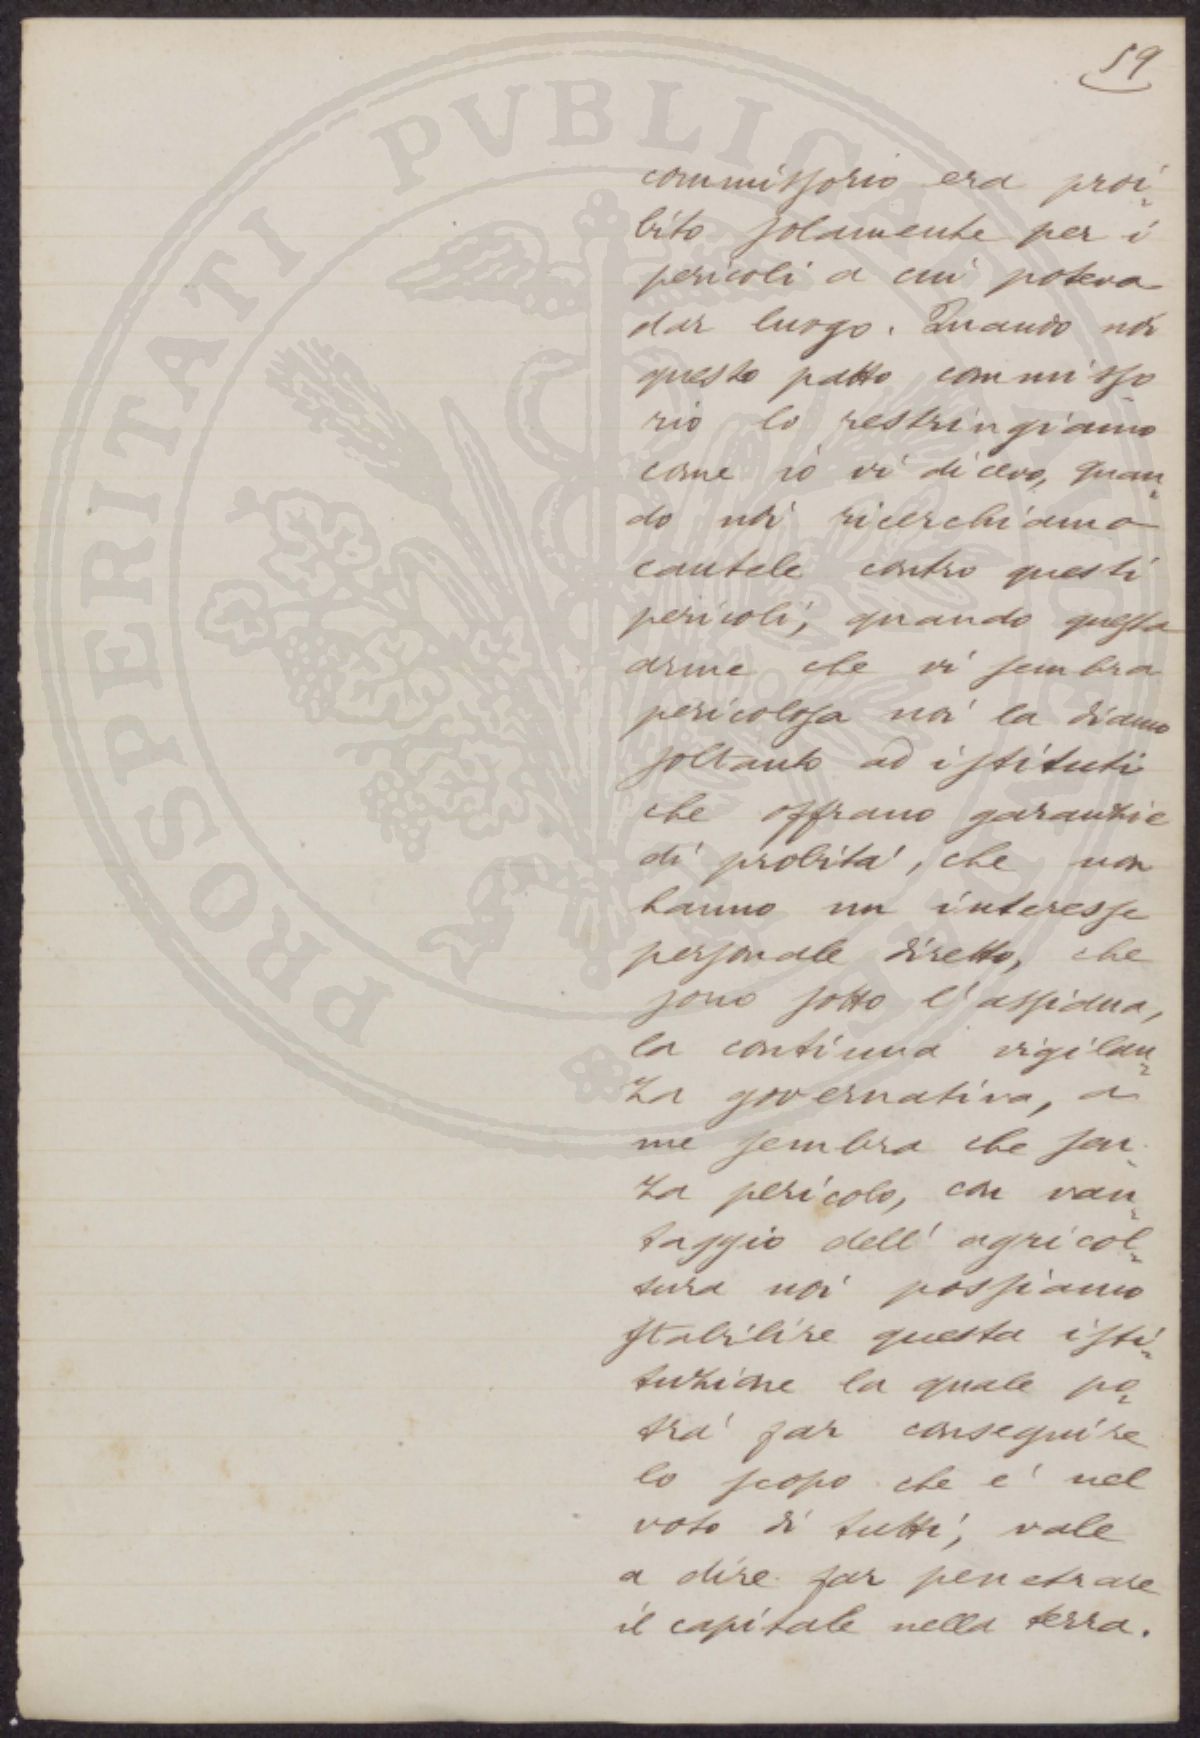 59
commissorio era proi-
bito solamente per i
pericoli a cui poteva
dar luogo. Quando noi
questo patto commisso
rio lo restringiamo
come io vi dicevo, quan-
do noi ricerchiamo
cautele contro questi
pericoli, quando questa
arme che vi sembra
pericolosa noi la diamo
soltanto ad istituti
che offrano garanzie
di probita', che non
hanno un interesse
personale diretto, che
sono sotto l'assidua,
la continua vigilan-
za governativa, a
me sembra che sen-
za pericolo, con van-
taggio dell'agricol-
tura noi possiamo
stabilire questa isti-
tuzione la quale po-
tra' far conseguire
lo scopo che e' nel
voto di tutti, vale
a dire far penetrare
il capitale nella terra.
PROSPERITATI PVBLICAE